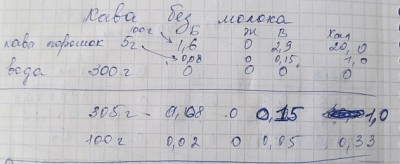 Кава без молока
100г Б Ж В Ккал
кава порошок 5г 1,6 0 2,9 20,0
0,08 0 0,15 1,0
вода 300г 0 0 0 0
305г - 0,08 0 0,15 1,0
100г 0,02 0 0,05 0,33